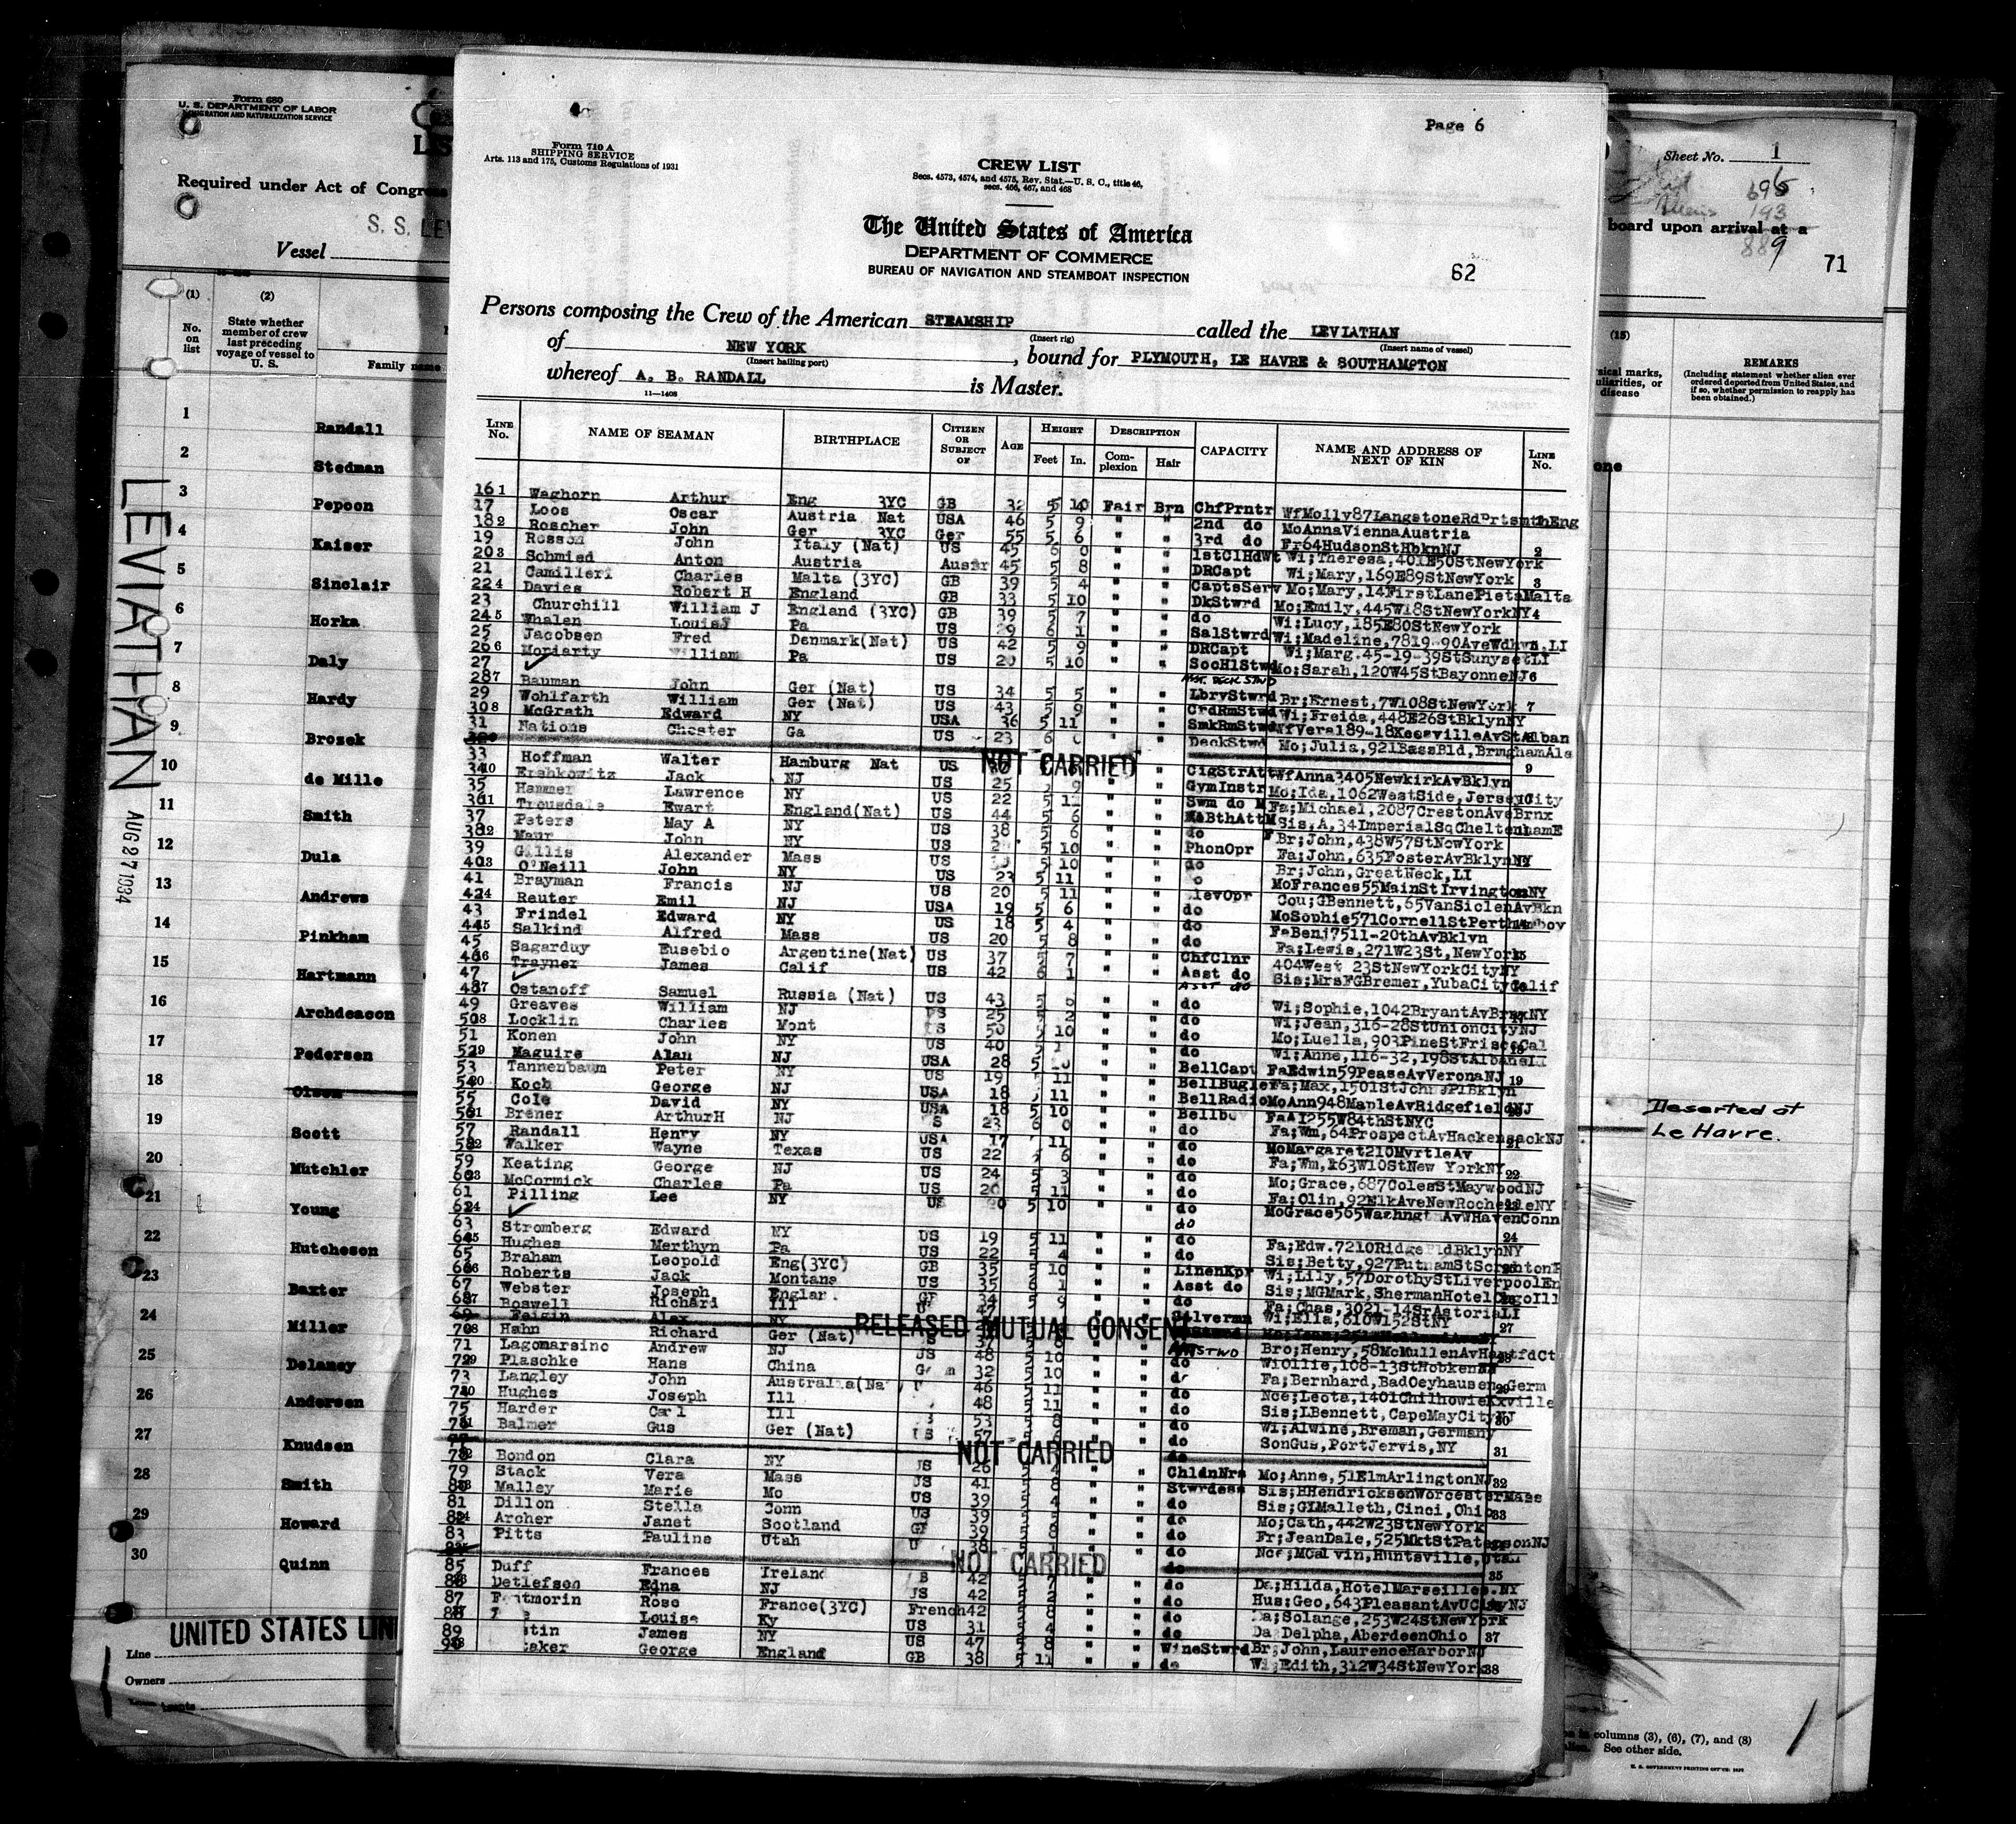 Form 680
U. S. DEPARTMENT OF LABOR
IMMIGRATION AND NATURALIZATION SERVICE
Required under Act of Congre
S. S. LEV
Vessel
(1)
(2)
No. on list
State whether member of crew last preceding voyage of vessel to U. S.
Family name
1 Randall
2 Stedman
3 Pepoon
4 Kaiser
5 Sinclair
6 Horka
7 Daly
8 Hardy
9 Brosek
10 de Mille
11 Smith
12 Dula
13 Andrews
14 Pinkham
15 Hartmann
16 Archdeacon
17 Pedersen
18 Olsen
19 Scott
20 Mutchler
21 Young
22 Hutcheson
23 Baxter
24 Miller
25 Delaney
26 Andersen
27 Knudsen
28 Smith
29 Howard
30 Quinn
LEVIATHAN
AUG 27 1934
UNITED STATES LIN
Line
Owners
Page 6
Form 710 A
SHIPPING SERVICE
Arts. 113 and 175, Customs Regulations of 1931
CREW LIST
Secs. 4573, 4574, and 4575, Rev. Stat.—U. S. C., title 46,
secs. 466, 467, and 468
The United States of America
DEPARTMENT OF COMMERCE
BUREAU OF NAVIGATION AND STEAMBOAT INSPECTION
62
Persons composing the Crew of the American STEAMSHIP called the LEVIATHAN
(Insert rig) (Insert name of vessel)
of NEW YORK, bound for PLYMOUTH, LE HAVRE & SOUTHAMPTON
(Insert hailing port)
whereof A. B. RANDALL is Master.
11—1408
LINE No. NAME OF SEAMAN BIRTHPLACE CITIZEN OR SUBJECT OF AGE HEIGHT Feet In. DESCRIPTION Complexion Hair CAPACITY NAME AND ADDRESS OF NEXT OF KIN LINE No.
16 1 Waghorn Arthur Eng 3YC GB 32 5 10 Fair Brn ChfPrntr WfMolly87LangstoneRdPrtsmthEng
17 Loos Oscar Austria Nat USA 46 5 9 " " 2nd do MoAnnaViennaAustria
18 2 Roscher John Ger 3YC Ger 55 5 6 " " 3rd do Fr64HudsonStHbknNJ 2
19 Rosson John Italy (Nat) US 45 6 0 " " 1stClHdWt Wi;Theresa,401E50StNewYork
20 3 Schmied Anton Austria Austr 45 5 8 " " DRCapt Wi;Mary,169E89StNewYork 3
21 Camilleri Charles Malta (3YC) GB 39 5 4 " " CaptsServ Mo;Mary,14FirstLanePietaMalta
22 4 Davies Robert H England GB 33 5 10 " " DkStwrd Mo;Emily,445W18StNewYorkNY 4
23 Churchill William J England (3YC) GB 39 5 7 " " do Wi;Lucy,185E80StNewYork
24 5 Whalen Louis Pa US 29 6 1 " " SalStwrd Wi;Madeline,7819-90AveWdhvn.LI
25 Jacobsen Fred Denmark(Nat) US 42 5 9 " " DRCapt Wi;Marg.45-19-39StSunysetLI
26 6 Moriarty William Pa US 20 5 10 " " SocHlStwd Mo;Sarah,120W45StBayonneNJ 6
27
28 7 Bauman John Ger (Nat) US 34 5 5 " " LbryStwrd Br;Ernest,7W108StNewYork 7
29 Wohlfarth William Ger (Nat) US 43 5 9 " " CrdRmStwd Wi;Freida,448E26StBklynNY
30 8 McGrath Edward NY USA 36 5 11 " " SmkRmStwd
31 Nations Chester Ga US 23 6 0 " " DeckStwd Mo;Julia,921BassBld,BrmghamAla
NOT CARRIED
33 Hoffman Walter Hamburg Nat US " CigStrAtt WfAnna3405NewkirkAvBklyn
34 10 Ershkowitz Jack NJ US 25 9 " " GymInstr Mo;Ida,1062WestSide,JerseyCity
35 Hammer Lawrence NY US 22 5 11 " " Swm do M Fa;Michael,2087CrestonAveBrnx
36 11 Trousdale Ewart England(Nat) US 44 5 6 " " BthAtt Sis,A,34ImperialSqCheltenhamE
37 Peters May A NY US 38 5 6 " " do F Br;John,438W57StNewYork
38 12 Maur John NY US 5 10 " " PhonOpr Fa;John,635FosterAvBklynNY
39 Gillis Alexander Mass US 5 10 " " do Br;John,GreatNeck,LI
40 13 O'Neill John NY US 23 5 11 " " MoFrances55MainStIrvingtonNY
41 Brayman Francis NJ US 20 5 11 " " levOpr Cou;GBennett,65VanSiclenAvBkn
42 14 Reuter Emil NJ USA 19 5 6 " " do MoSophie571CornellStPerthAmboy
43 Frindel Edward NY US 18 5 4 " " do FaBenj7511-20thAvBklyn
44 15 Salkind Alfred Mass US 20 5 8 " " do Fa;Lewis,271W23St,NewYork
45 Sagarduy Eusebio Argentine(Nat) US 37 5 7 " " ChfClnr 404West 23StNewYorkCityNY
46 16 Trayner James Calif US 42 6 1 " " Asst do Sis;MrsFGBremer,YubaCityCalif
47 Asst do
48 17 Ostanoff Samuel Russia (Nat) US 43 5 " " do Wi;Sophie,1042BryantAvBrnxNY
49 Greaves William NJ US 25 5 2 " " do Wi;Jean,316-28StUnionCityNJ
50 18 Locklin Charles Mont US 50 5 10 " " do Mo;Luella,903PineStFriscoCal
51 Konen John NY US 40 5 " " do Wi;Anne,116-32,198StAlbansLI
52 19 Maguire Alan NJ USA 28 5 10 " " BellCapt FaEdwin59PeaseAvVeronaNJ 19
53 Tannenbaum Peter NY US 19 11 " " BellBugler Fa;Max,1501StJohnsPlBklyn
54 20 Koch George NJ USA 18 11 " " BellRadio MoAnn948MapleAvRidgefieldNJ
55 Cole David NY USA 18 5 10 " " Bellboy FaAl255W84thStNYC
56 21 Brener ArthurH NJ S 23 6 0 " " do Fa;Wm,64ProspectAvHackensackNJ
57 Randall Henry NY USA 17 11 " " do MoMargaret210MyrtleAv
58 22 Walker Wayne Texas US 22 6 " " do Fa;Wm,163W10StNew YorkNY 22
59 Keating George NJ US 24 5 3 " " do Mo;Grace,687ColesStMaywoodNJ
60 23 McCormick Charles Pa US 20 5 11 " " do Fa;Olin,92ElkAveNewRochelleNY
61 Pilling Lee NY US 20 5 10 " " do
62 24 do
63 Stromberg Edward NY US 19 5 11 " " do Fa;Edw.7210Ridge BklynNY 24
64 25 Hughes Merthyn Pa US 22 5 4 " " do Sis;Betty,927PutnamStScranton
65 Braham Leopold Eng(3YC) GB 35 5 10 " " LinenKpr Wi;Lily,57DorothyStLiverpoolEn
66 26 Roberts Jack Montana US 35 6 1 " " Asst do Sis;MGMark,ShermanHotel
67 Webster Joseph 34 5 9 " " do Fa;Chas,3021-14SrAstoriaLI
68 27 Boswell Richard Ill Silverman Wi;Ella,610W152StNY 27
69 Feigin Alex NY
RELEASED MUTUAL CONSENT
70 28 Hahn Richard Ger (Nat) Bro;Henry,58McMullenAvHartfdCt
71 Lagomarsino Andrew NJ US 48 5 10 " " do WiOllie,108-13StHoboken
72 29 Plaschke Hans China 32 5 10 " " do Fa;Bernhard,BadOeyhausen,Germ
73 Langley John 46 5 11 " " do Nce;Leota,1401Chilhowie
74 30 Hughes Joseph Ill 48 5 11 " " do Sis;LBennett,CapeMayCityNJ 30
75 Harder Carl Ill 53 5 8 " " do Wi;Alwine,Breman,Germany
76 31 Balmer Gus Ger (Nat) US 57 5 6 " " do SonGus,PortJervis,NY 31
NOT CARRIED
78 32 Bondon Clara NY US 26 5 4 " " ChldnNrs Mo;Anne,51ElmArlingtonNJ 32
79 Stack Vera Mass US 41 5 8 " " Stwrdess Sis;HHendricksenWorcesterMass
80 33 Malley Marie Mo US 39 5 4 " " do Sis;GYMalleth,Cinci,Ohio 33
81 Dillon Stella Conn US 39 5 " " do Mo;Cath,442W23StNewYork
82 34 Archer Janet Scotland 39 5 8 " " do Fr;JeanDale,525MktStPatersonNJ
83 Pitts Pauline Utah 38 5 " " do
NOT CARRIED
35
85 Duff Frances Ireland 42 5 " " do Da;Hilda,HotelMarseilles.NY
86 36 Detlefsen Edna NJ US 42 5 2 " " do Hus;Geo,643PleasantAvUCityNJ
87 Rose France(3YC) French 42 5 8 " " do Da;Solange,253W24StNewYork
88 37 Louise Ky US 31 5 4 " " do Da Delpha,AberdeenOhio 37
89 tin James NY US 47 5 8 " " WineStwrd Br;John,LaurenceHarborNJ
90 38 aker George England GB 38 5 11 " " do Wi;Edith,312W34StNewYork 38
Sheet No. 1
696
193
889
board upon arrival at a
71
(15)
REMARKS
(Including statement whether alien ever ordered deported from United States, and if so, whether permission to reapply has been obtained.)
Deserted at
Le Havre.
in columns (3), (6), (7), and (8)
See other side.
U. S. GOVERNMENT PRINTING OFFICE